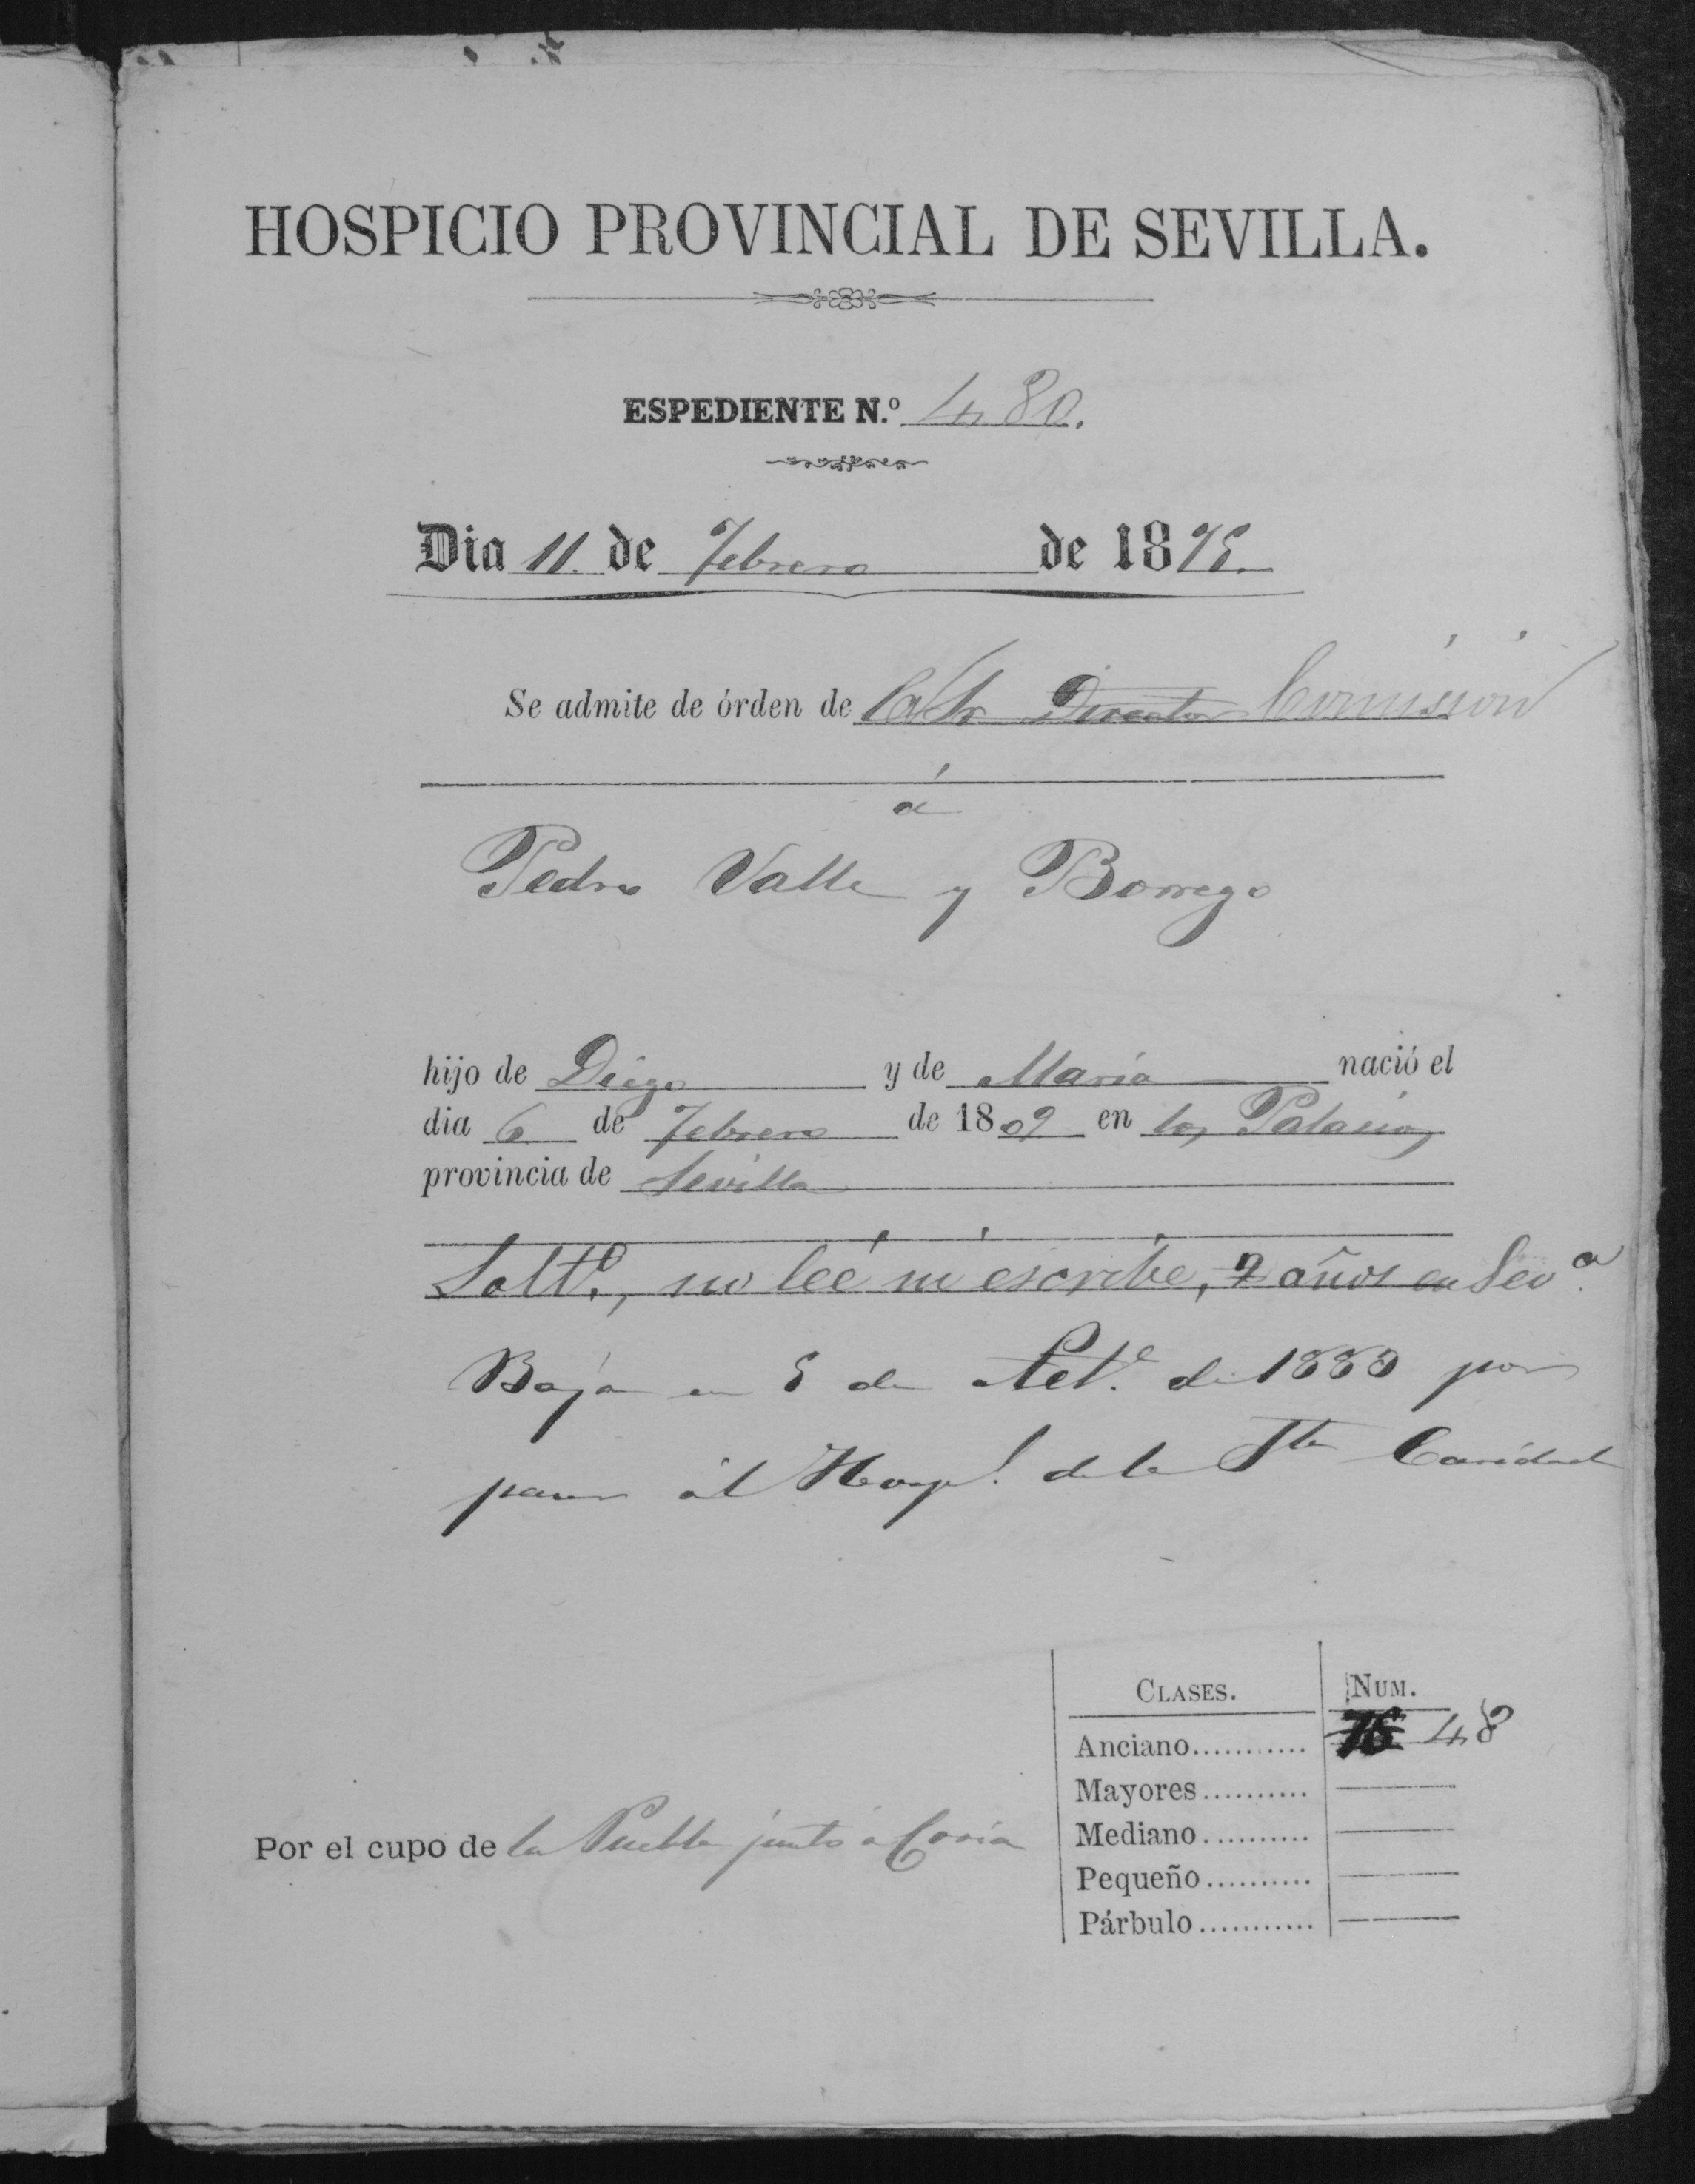 HOSPICIO PROVINCIAL DE SEVILLA.
ESPEDIENTE N.º 480.
Dia 11. de Febrero de 1875.
Se admite de órden de la Sr Director Comisión
á
Pedro Valle y Borrego
hijo de Diego y de María nació el
dia 6 de Febrero de 1809 en los Palacios
provincia de Sevilla
Solt.º, no leé ni escribe, 2 años en Sev.ª
Baja en 5 de de 1883 por
pasar al Hosp.l de la Sta Caridad
CLASES. NUM.
Anciano........... 48
Mayores..........
Mediano..........
Por el cupo de la Puebla junto á Coria
Pequeño..........
Párbulo...........